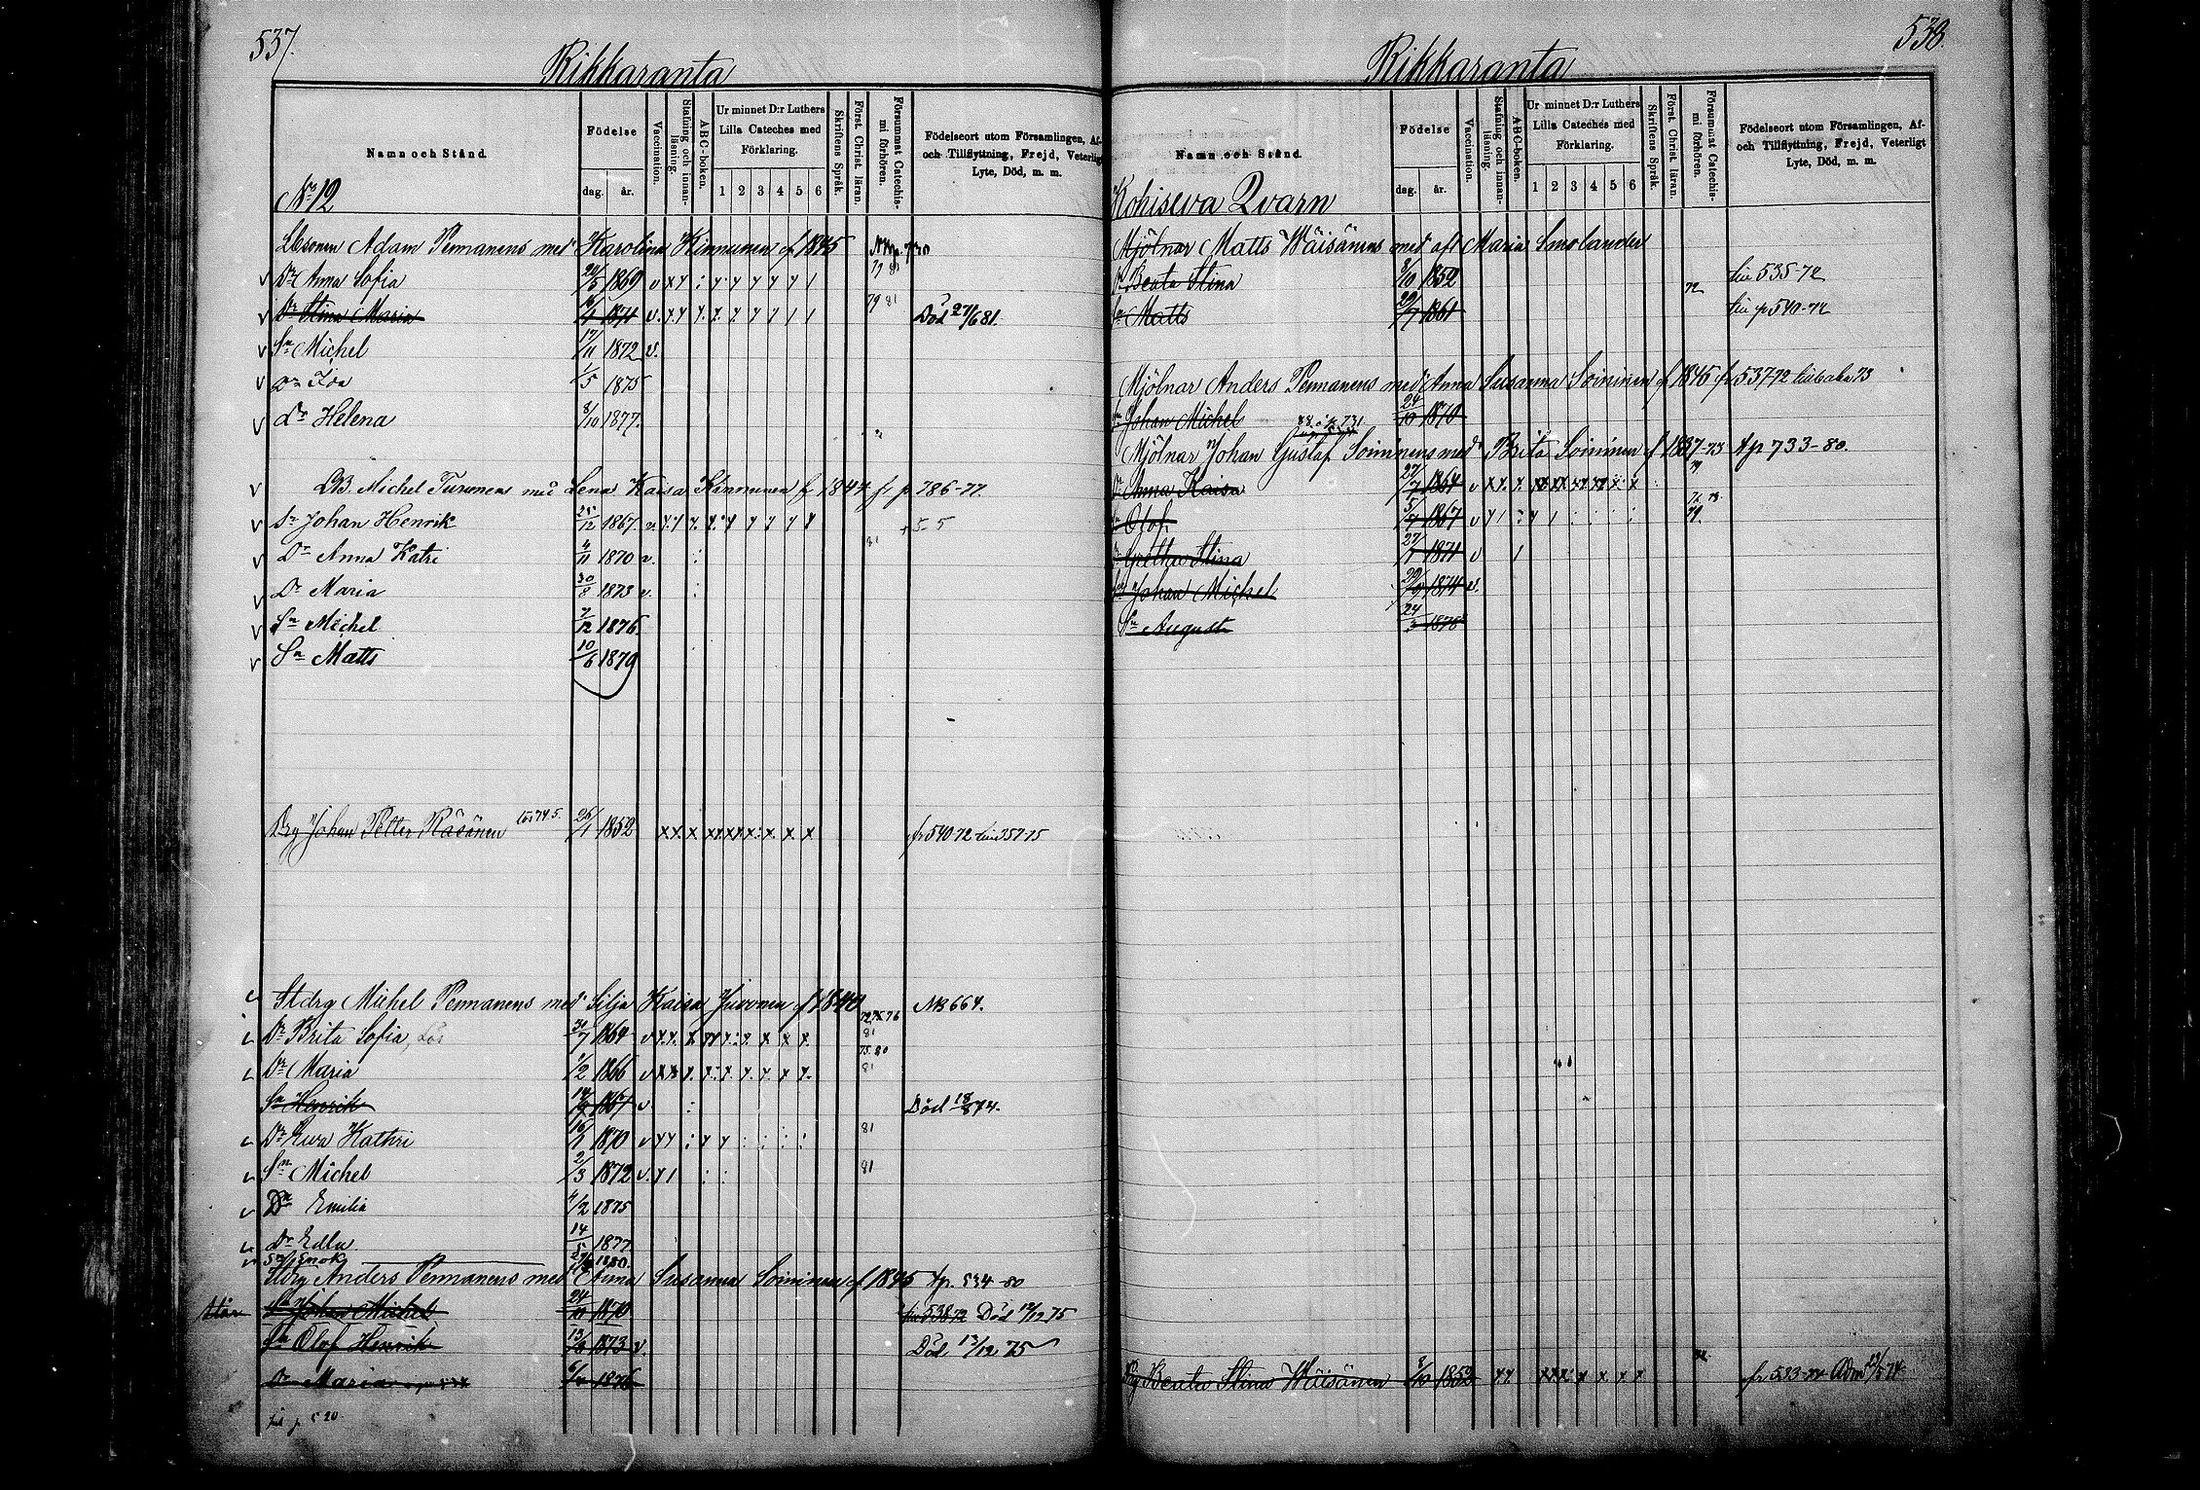 537.
Rikkaranta
Namn och Stånd.
Födelse
dag. år.
Vaccination.
Stafning och innanläsning.
ABC-boken.
Ur minnet D:r Luthers Lilla Cateches med Förklaring.
1 2 3 4 5 6
Skriftens Språk.
Först. Christ. läran.
Försummat Catechismi förhören.
Födelseort utom Församlingen, Af- och Tillflyttning, Frejd, Veterligt Lyte, Död, m. m.
No 12
Adam Pennanens med Karolina Kinnunen f 1845
Dr Anna Sofia 1869
Dr Stina Maria 1871 79 81 Död 27/6 81.
Sn Michel 17/11 1872 v.
Dr Ida 1/5 1875
Dr Helena 8/10 1877.
Michel Turunens med Lena Kaisa Kinnunen f 1844 fr p 786-77.
Sn Johan Henrik 25/12 1867
Dr Anna Katri 4/11 1870 v.
Dr Maria 30/8 1873 v.
Sn Michel 7/12 1876
Sn Matts 10/6 1879
Drg Johan Petter Räsänen 26/1 1852 fr 540-72
Stdrg Michel Pennanens med Silja Kaisa Juvonen f 1840 NB 664.
Dr Brita Sofia 31/7 1864 81
Dr Maria 1/2 1866 81
Sn Henrik 1867 v Död 74.
Dr Ewa Kathri 16/1 1870 81
Sn Michel 2/3 1872 81
Dr Emilia 4/2 1875
Dr Edla 14/5 1877
Sn Enok 1880.
Stdrg Anders Pennanens med Anna Susanna Soininen f 1845
Sn Johan Michel 24/10 1870 Död 12/12 75
Sn Olof Henrik 1873 v. Död 13/12 75
Dr Maria 1876
538.
Rikkaranta
Namn och Stånd.
Födelse
dag. år.
Vaccination.
Stafning och innanläsning.
ABC-boken.
Ur minnet D:r Luthers Lilla Cateches med Förklaring.
1 2 3 4 5 6
Skriftens Språk.
Först. Christ. läran.
Försummat Catechismi förhören.
Födelseort utom Församlingen, Af- och Tillflyttning, Frejd, Veterligt Lyte, Död, m. m.
Kohiseva Qvarn
Mjölnar Matts Wäisänens med afl Maria Smolander
Dr Beata Stina 8/10 1852 72 535-72
Sn Matts 29/7 1861 p 540-72
Mjölnar Anders Pennanens med Anna Susanna Soininen f 1845 fr 537-72
Sn Johan Michel 24/10 1870
Mjölnar Johan Gustaf Soininens med Brita Soininen 733-80.
Dr Anna Kaisa 27/7 1864
Sn Olof 5/7 1867
Dr Gretha Stina 1871 v
Sn Johan Michel 1874 v.
Sn August 24/3 1878
Beata Stina Wäisänen 8/10 1852